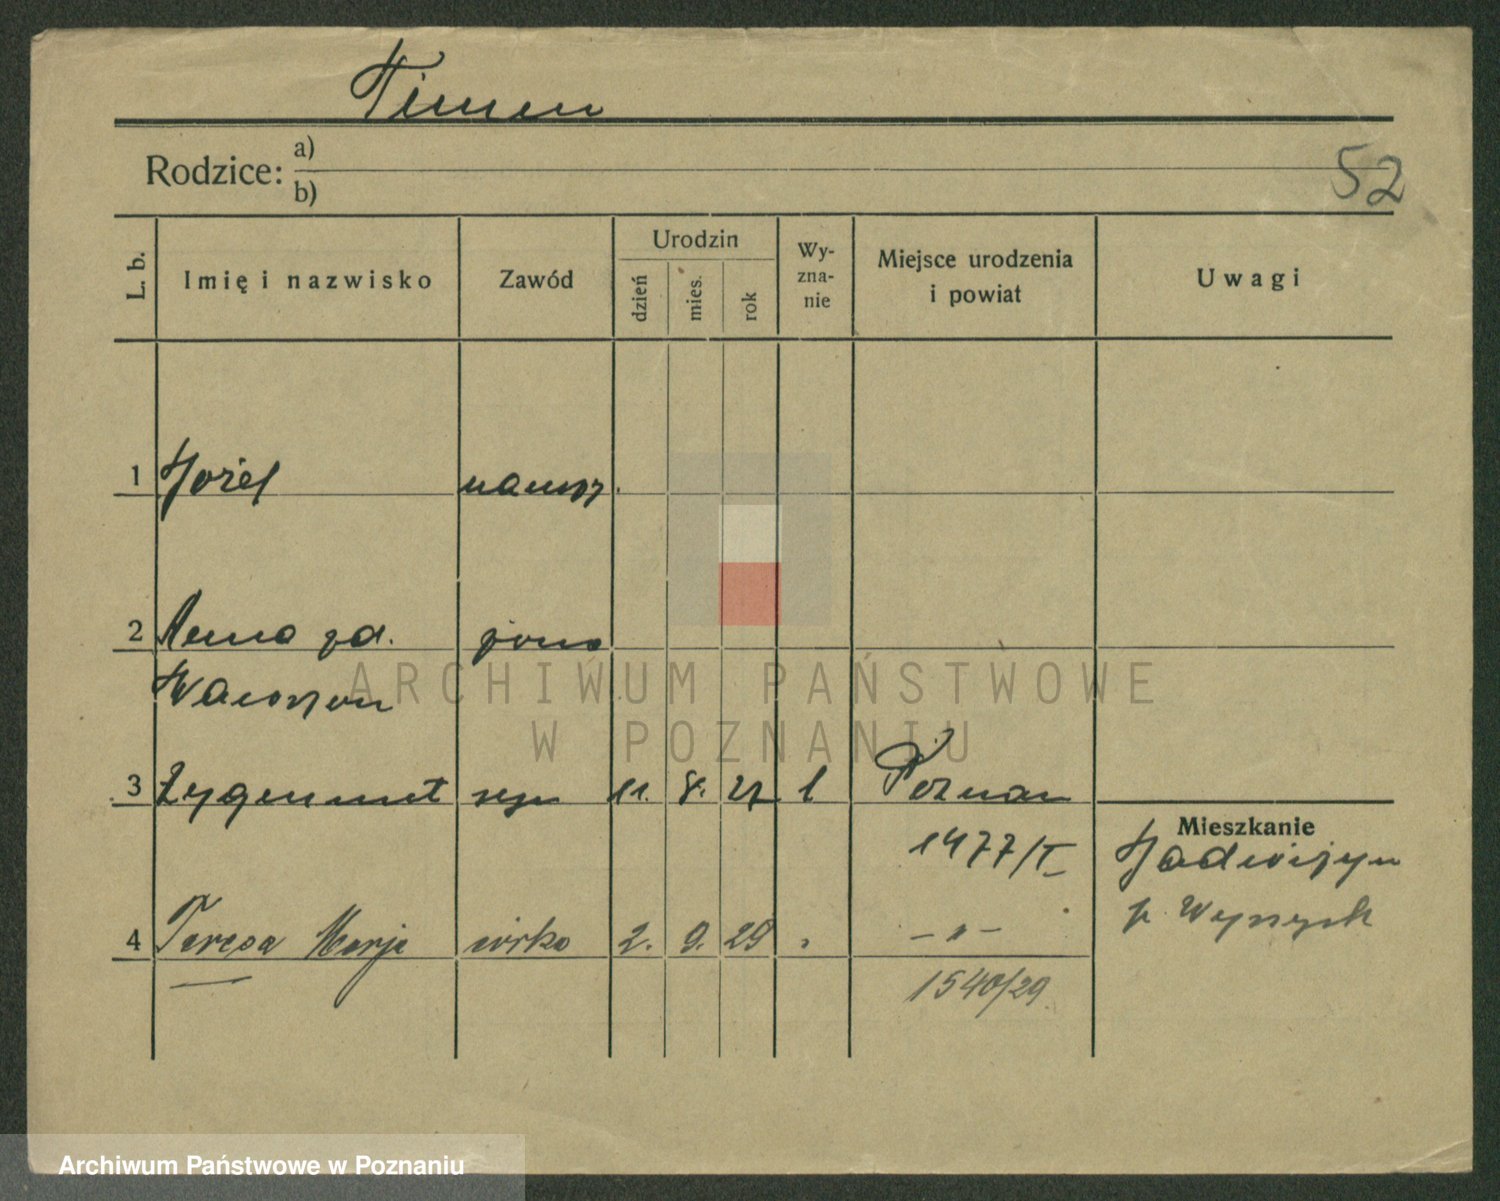 Timm
52
Rodzice: a)
b)
L. b. Imię i nazwisko Zawód Urodzin dzień mies. rok Wy-zna-nie Miejsce urodzenia i powiat Uwagi
1 Józef
2 Anna żona
3 Zygmunt syn 11. 8. 27 1 Poznań
1477/I
Mieszkanie
4 Teresa Marja córka 2. 9. 29 „ – „ –
1540/29
ARCHIWUM PAŃSTWOWE
W POZNANIU
Archiwum Państwowe w Poznaniu